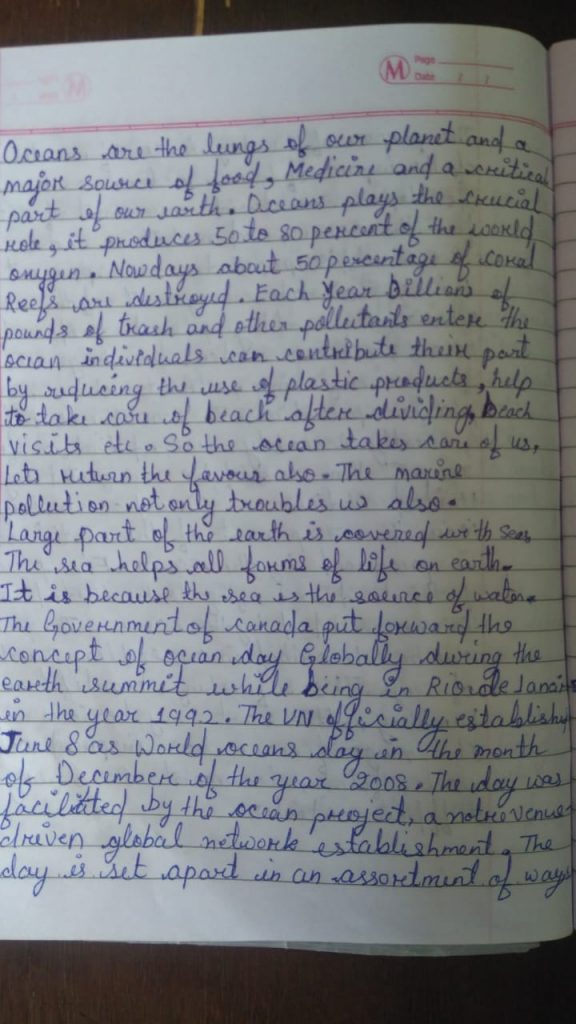 M Page
Date / /
Oceans are the lungs of our planet and a
major source of food, Medicine and a critical
part of our earth. Oceans plays the crucial
role, it produces 50 to 80 percent of the world
oxygen. Nowdays about 50 percentage of coral
Reefs are destroyed. Each Year billions of
pounds of trash and other pollutants enter the
ocean individuals can contribute their part
by reducing the use of plastic products, help
to take care of beach after dividing, beach
visits etc. So the ocean takes care of us,
Lets return the favour also. The marine
pollution not only troubles us also.
Large part of the earth is covered with Seas,
The sea helps all forms of life on earth.
It is because the sea is the source of water.
The Government of Canada put forward the
concept of ocean day Globally during the
earth summit while being in Rio de Janair
in the year 1992. The UN officially establish
June 8 as World oceans day in the month
of December of the year 2008. The day was
facilitted by the ocean project, a not revenue
driven global network establishment. The
day is set apart in an assortment of ways